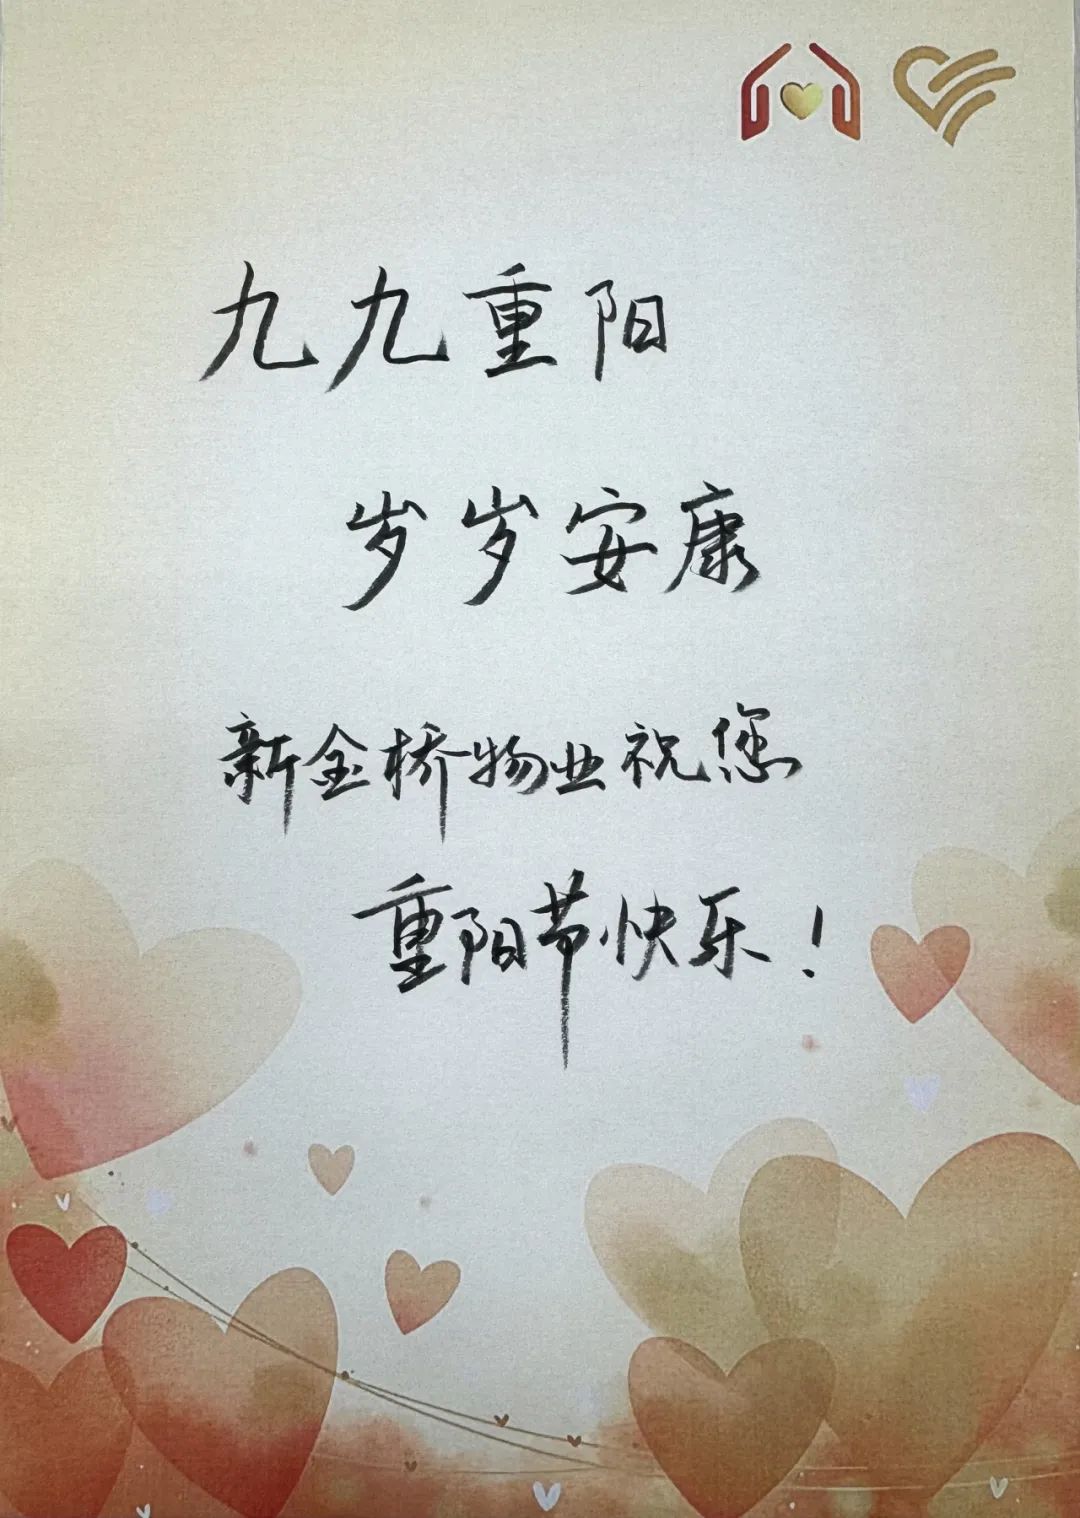 九九重阳
岁岁安康
新金桥物业祝您
重阳节快乐！